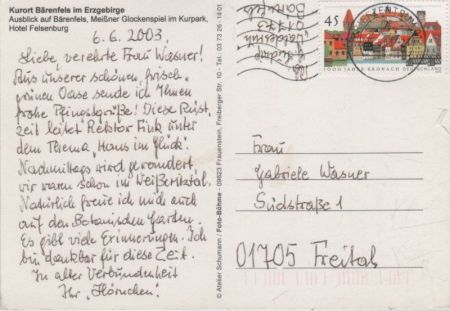 Kurort Bärenfels im Erzgebirge
Ausblick auf Bärenfels, Meißner Glockenspiel im Kurpark,
Hotel Felsenburg
6.6.2003
Liebe, verehrte Frau Wasner!
Aus unserer schönen, frisch-
grünen Oase sende ich Ihnen
frohe Pfingstgrüße! Diese Rüst-
zeit leitet Rektor Fink unter
dem Thema „Hans im Glück".
Nachmittags wird gewandert
wir waren schon im Weißeritztal.
Natürlich freue ich mich auch
auf den Botanischen Garten.
Es gibt viele Erinnerungen. Ich
bin dankbar für diese Zeit.
In alter Verbundenheit
Ihr „Hörnchen"
© Atelier Schumann / Foto-Böhme - 09623 Frauenstein, Freiberger Str. 10 - Tel. 03 73 26 - 14 01
BRIEFZENTRUM
45
1000 JAHRE KRONACH DEUTSCHLAND
Frau
Gabriele Wasner
Südstraße 1
01705 Freital